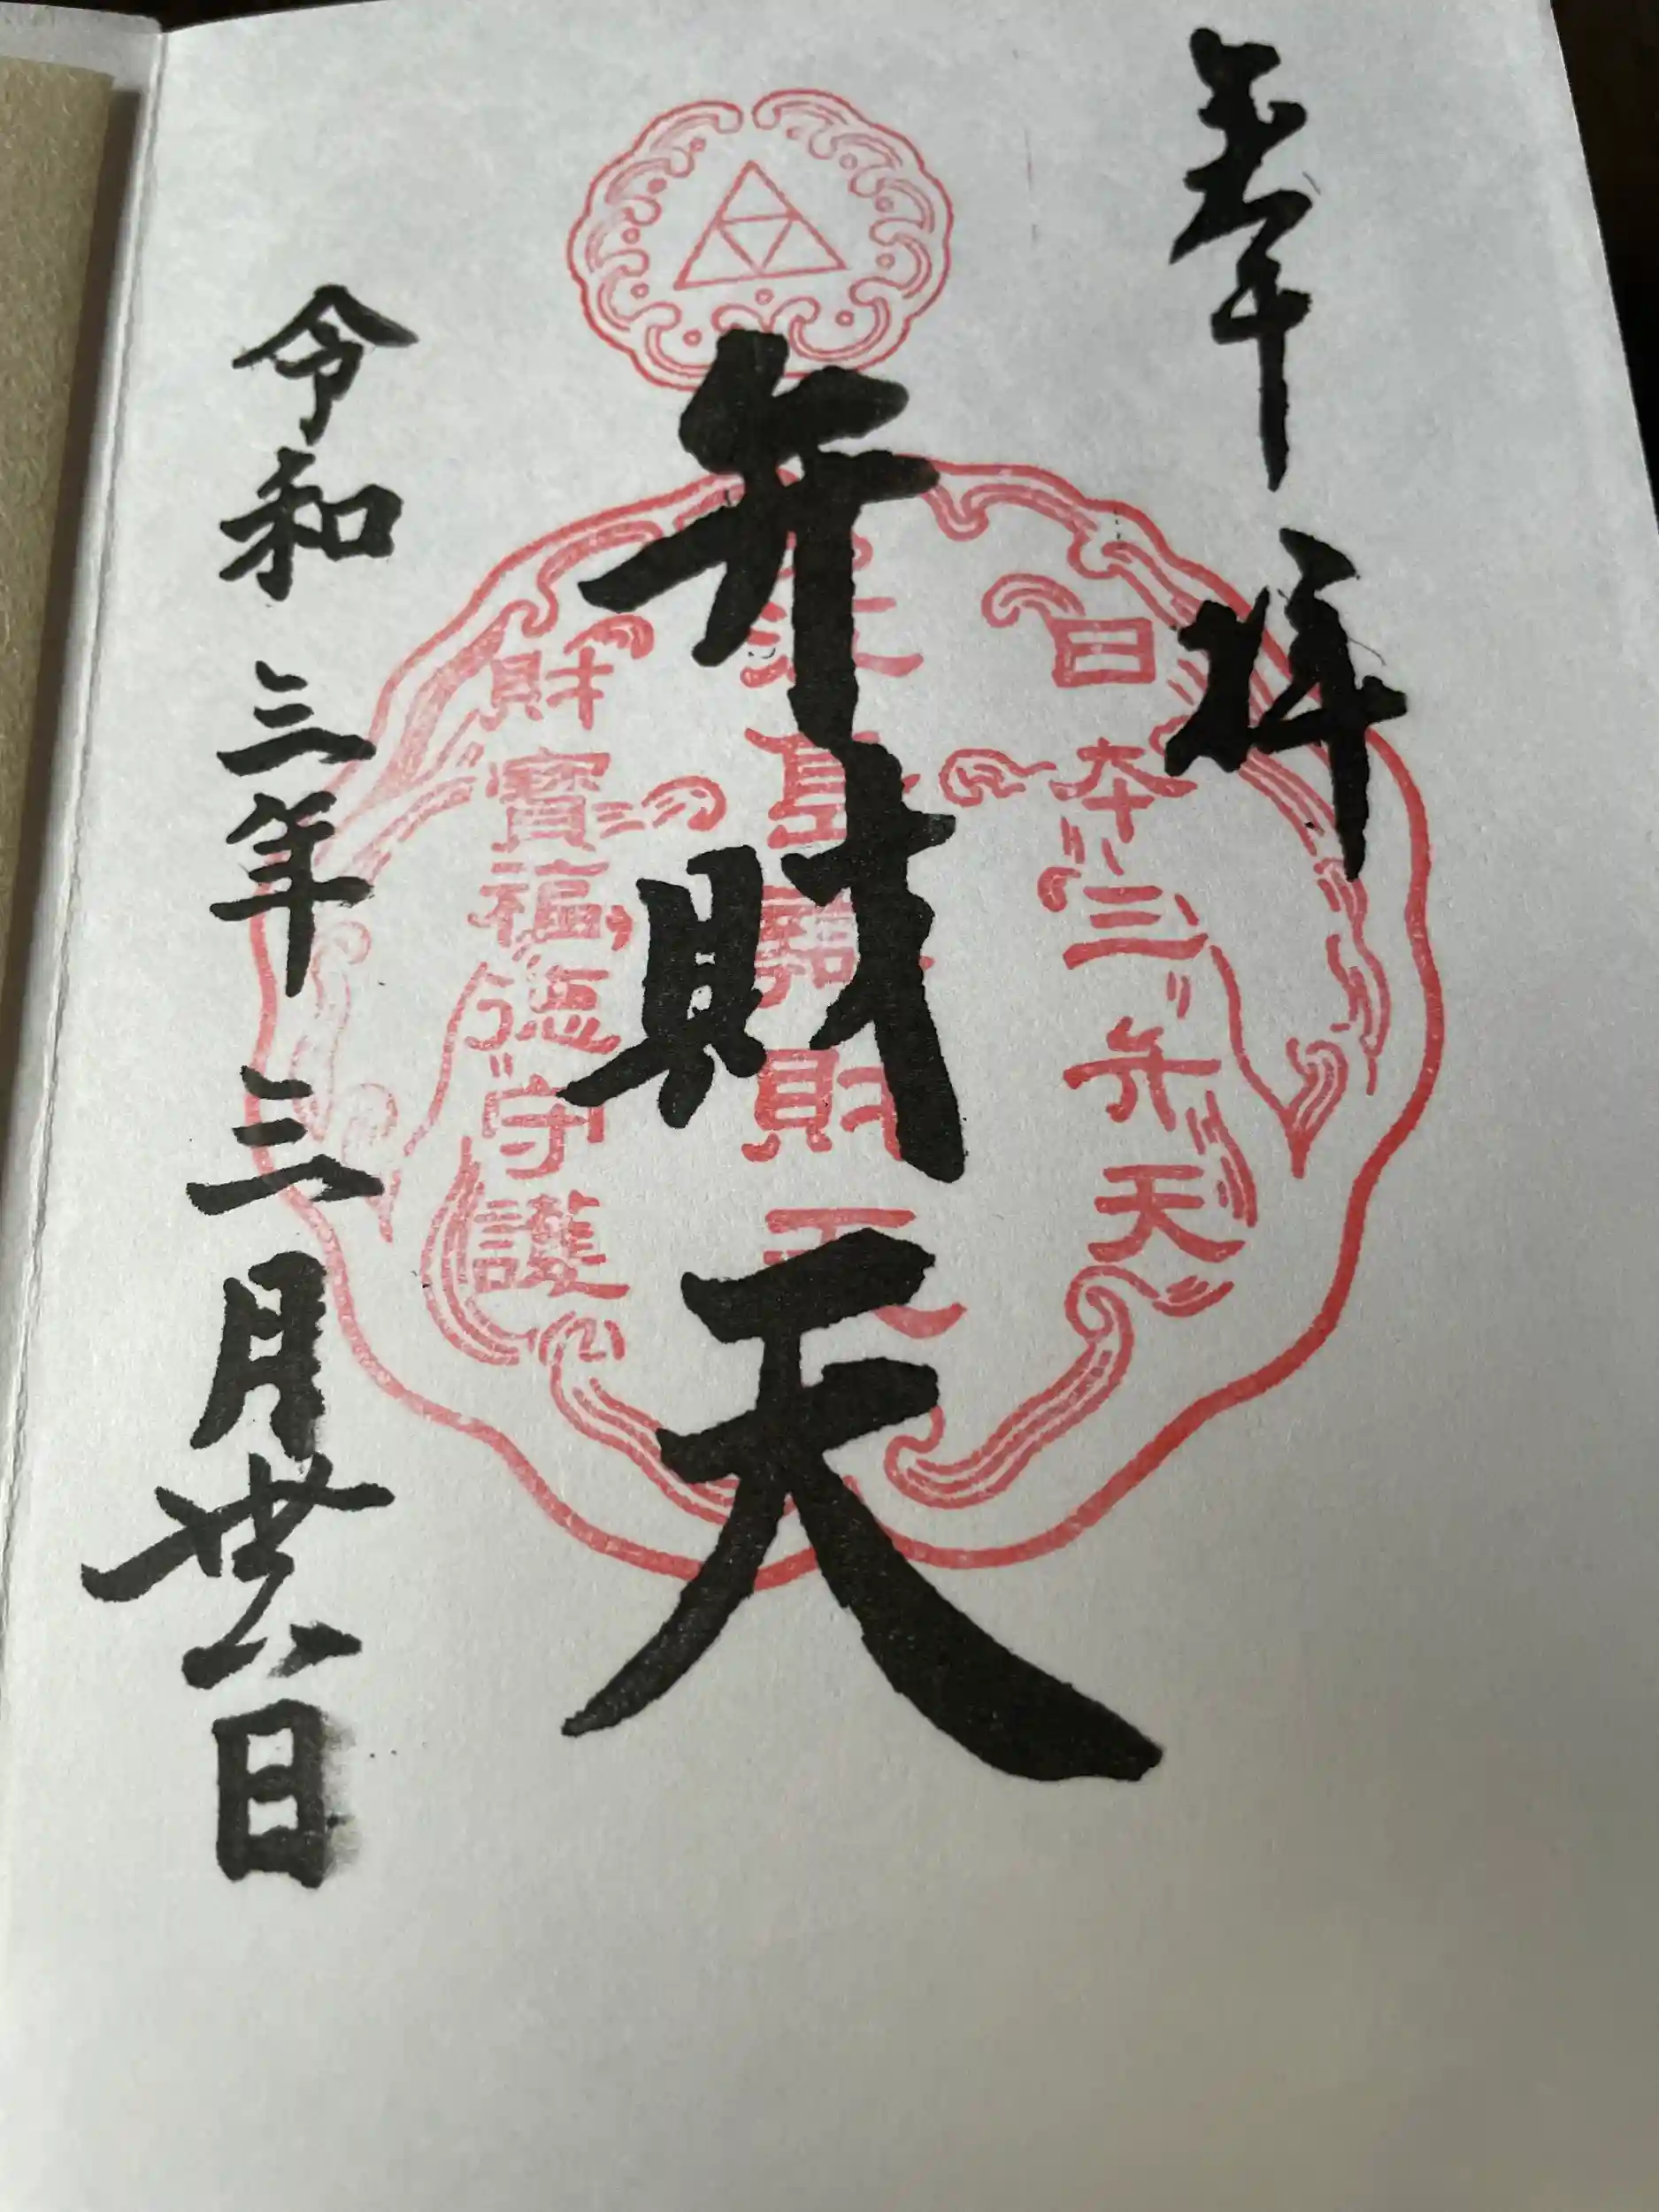 奉拝
日本三弁天
弁財天
島財天
財寶福徳守護
令和三年三月廿八日